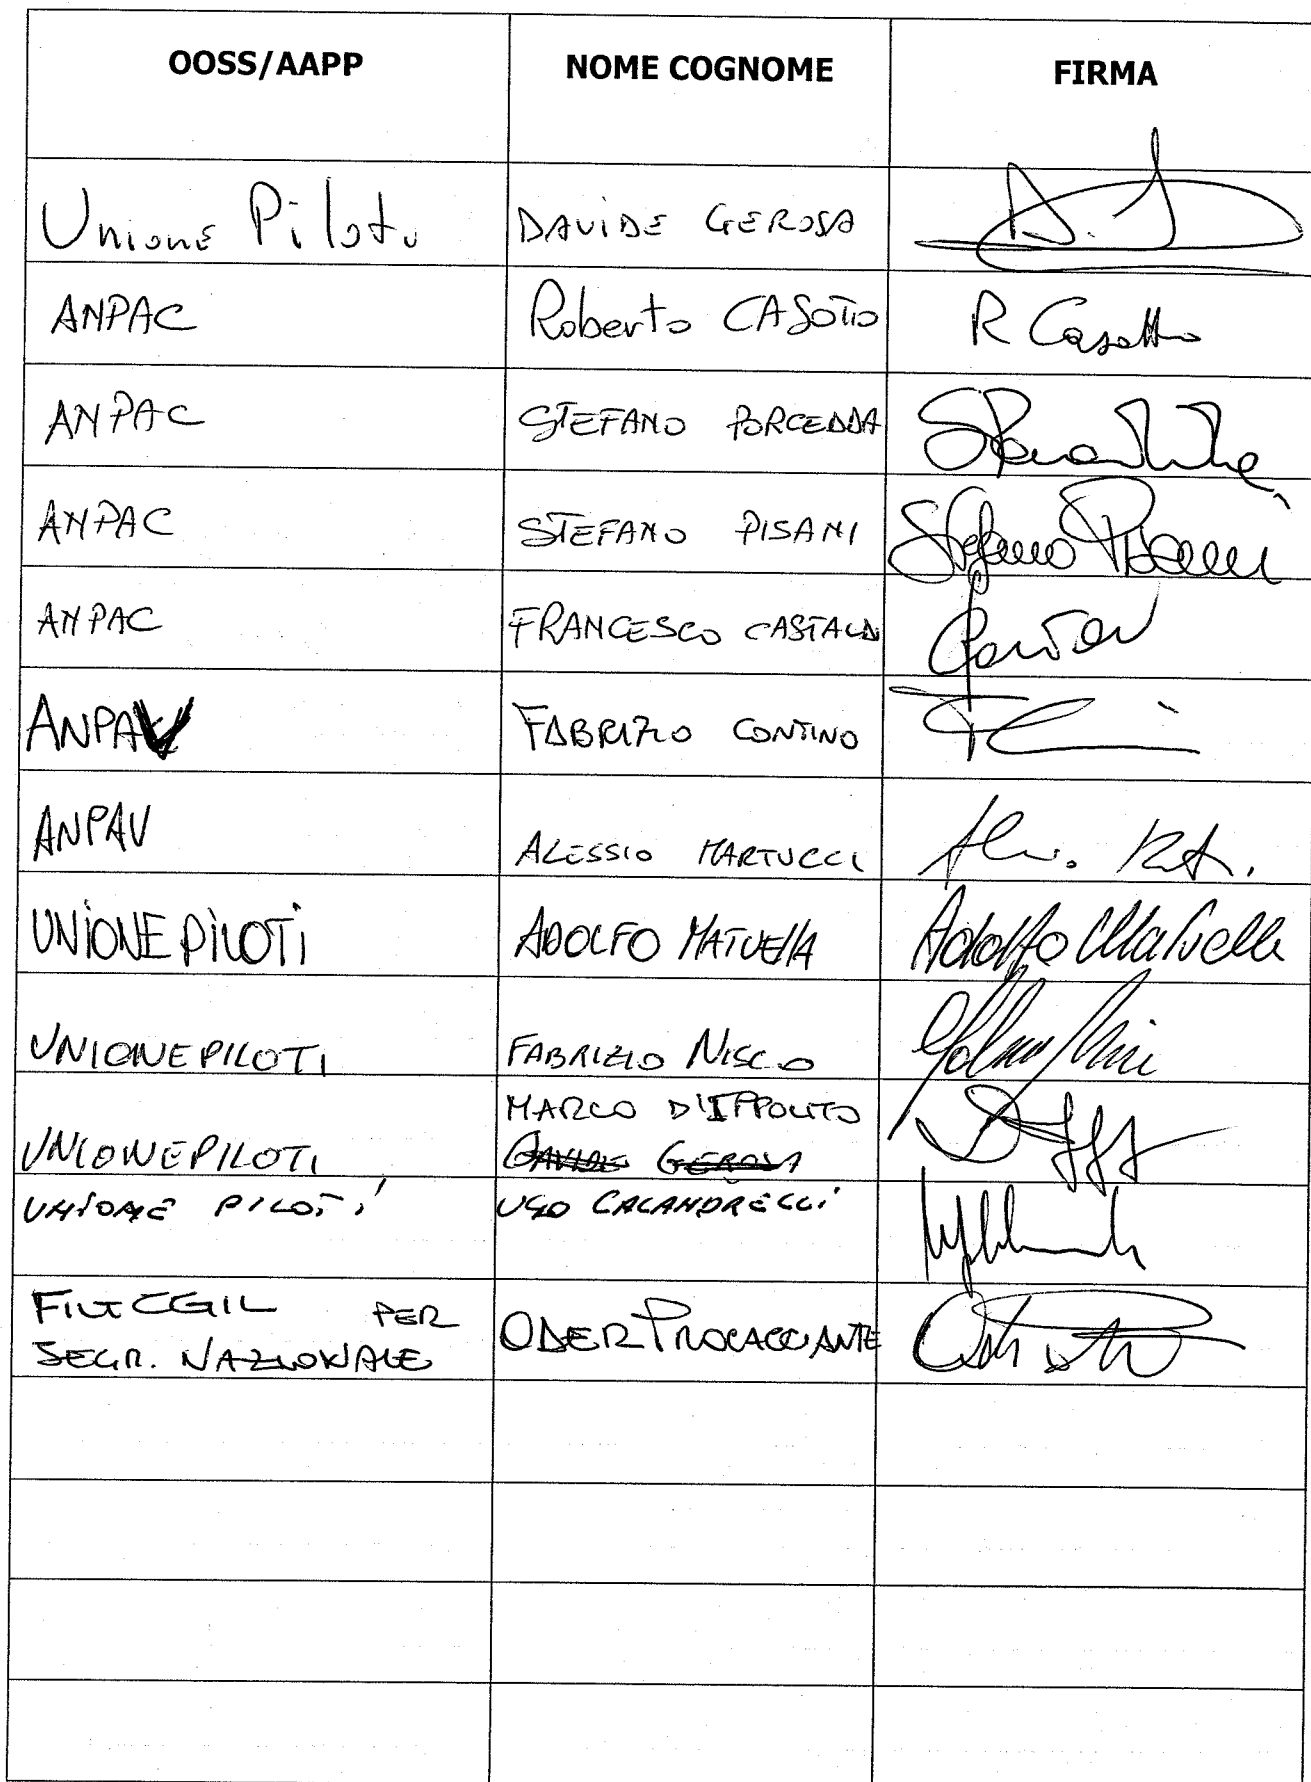 OOSS/AAPP NOME COGNOME FIRMA
Unione Piloti DAVIDE GEROSA
ANPAC Roberto CASOTTO R Casotto
ANPAC STEFANO PORCEDDA
ANPAC STEFANO PISANI Stefano Pisani
ANPAC FRANCESCO CASTALDI
ANPAV FABRIZIO CONTINO
ANPAV ALESSIO MARTUCCI
UNIONE PILOTI ADOLFO MATUELLA Adolfo Matuella
UNIONE PILOTI FABRIZIO NISCIO
MARCO D'IPPOLITO
UNIONE PILOTI DAVIDE GEROSA
UNIONE PILOTI UGO CALANDRELLI
FILT CGIL PER
SEGR. NAZIONALE ODER PROCACCIANTE